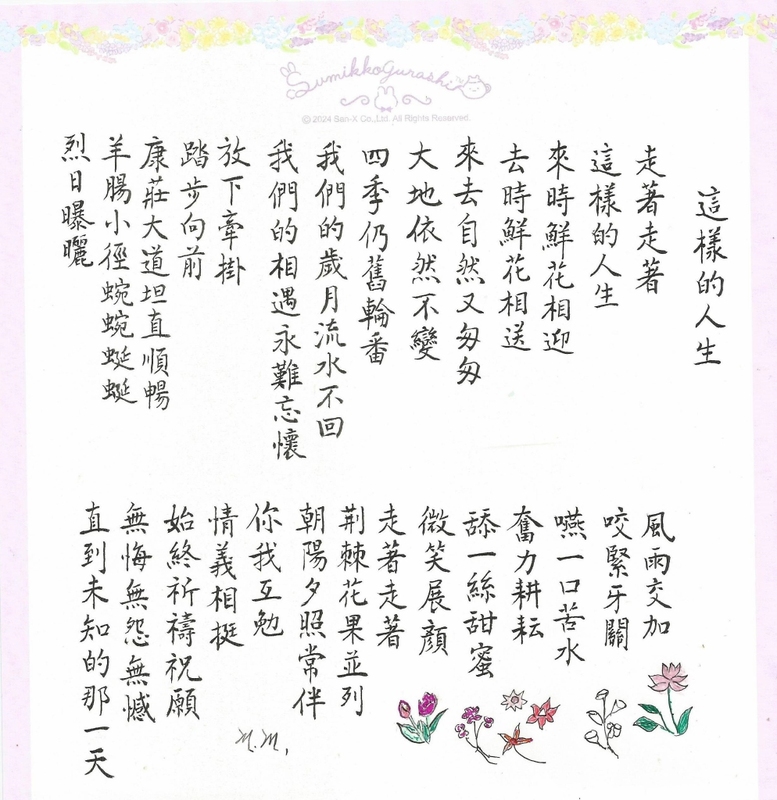 Sumikkogurashi
© 2024 San-X Co., Ltd. All Rights Reserved.
這樣的人生
走著走著
這樣的人生
來時鮮花相迎
去時鮮花相送
來去自然又匆匆
大地依然不變
四季仍舊輪番
我們的歲月流水不回
我們的相遇永難忘懷
放下牽掛
踏步向前
康莊大道坦直順暢
羊腸小徑蜿蜿蜒蜒
烈日曝曬
風雨交加
咬緊牙關
嚥一口苦水
奮力耕耘
舔一絲甜蜜
微笑展顏
走著走著
荆棘花果並列
朝陽夕照常伴
你我互勉
情義相挺
始終祈禱祝願
無悔無怨無憾
直到未知的那一天
M.M.